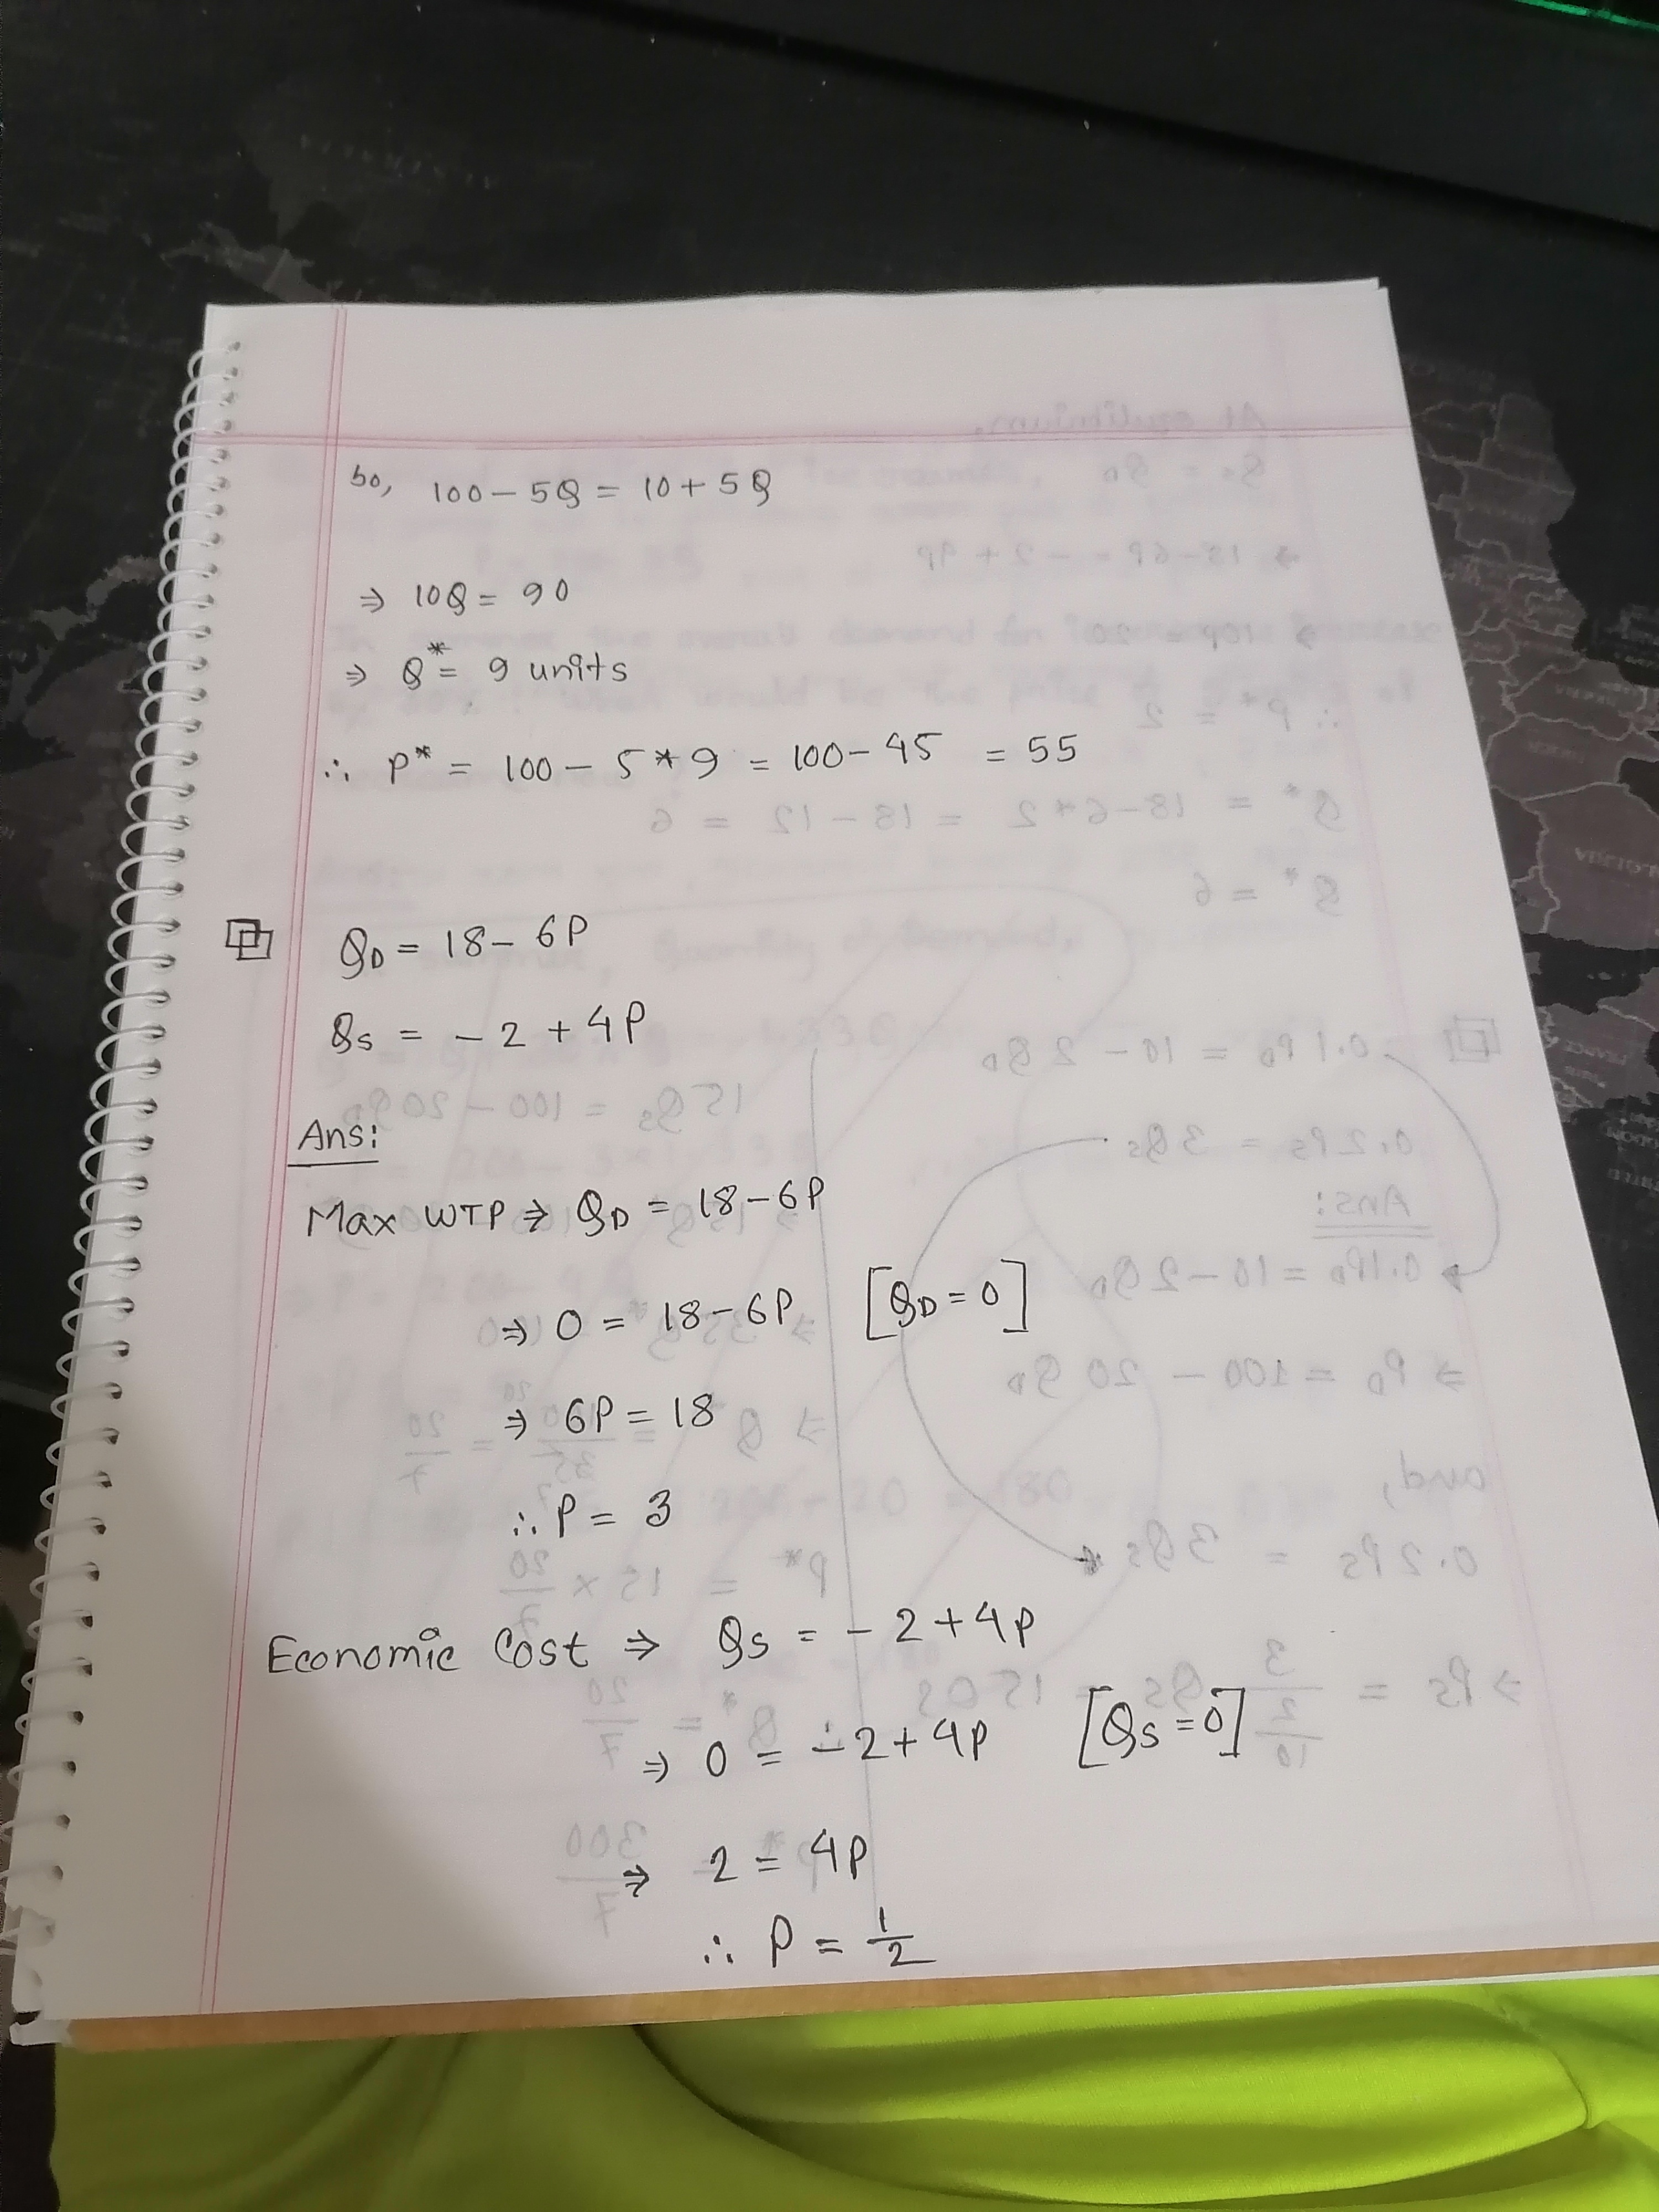 So, 100 - 5Q = 10 + 5Q
⇒ 10Q = 90
⇒ Q* = 9 units
∴ P* = 100 - 5 * 9 = 100 - 45 = 55
Q_D = 18 - 6P
Q_S = - 2 + 4P
Ans:
Max WTP ⇒ Q_D = 18 - 6P
⇒ 0 = 18 - 6P [Q_D = 0]
⇒ 6P = 18
∴ P = 3
Economic Cost ⇒ Q_S = - 2 + 4P
⇒ 0 = - 2 + 4P [Q_S = 0]
⇒ 2 = 4P
∴ P = 1/2